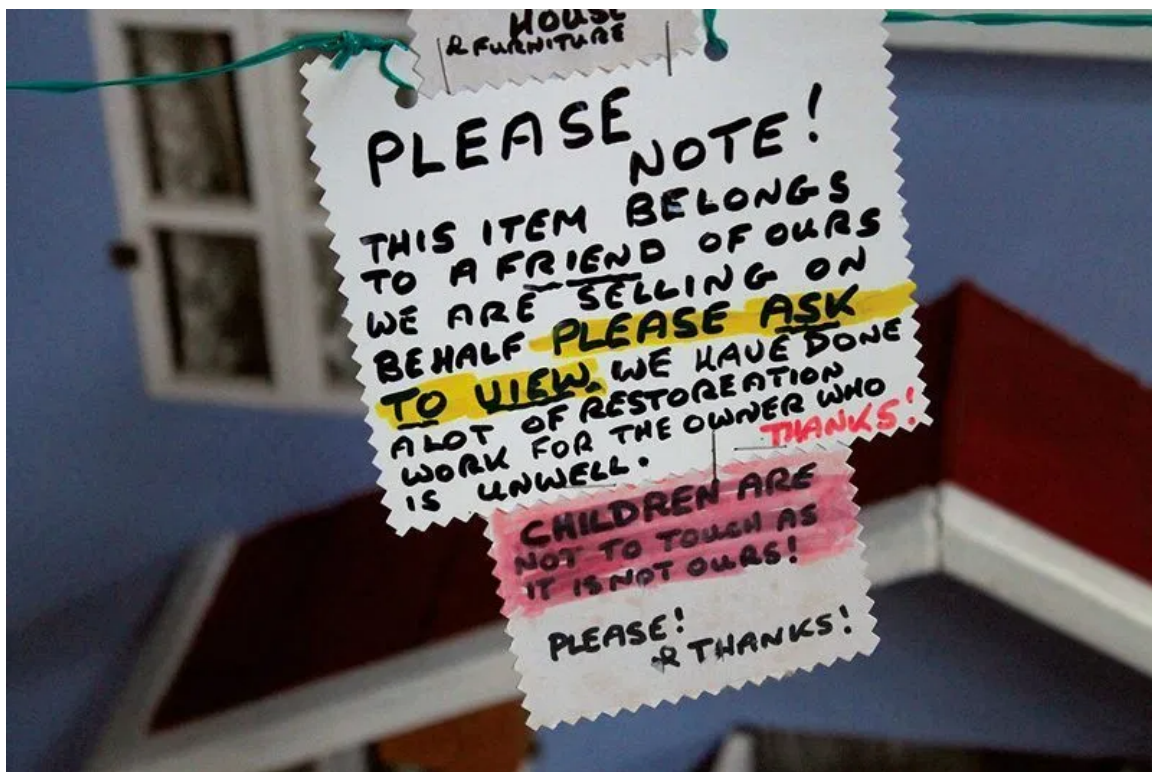 HOUSE
& FURNITURE
PLEASE
NOTE!
THIS ITEM BELONGS
TO A FRIEND OF OURS
WE ARE SELLING ON
BEHALF PLEASE ASK
TO VIEW. WE HAVE DONE
A LOT OF RESTOREATION
WORK FOR THE OWNER WHO
IS UNWELL. THANKS!
CHILDREN ARE
NOT TO TOUCH AS
IT IS NOT OURS!
PLEASE!
& THANKS!